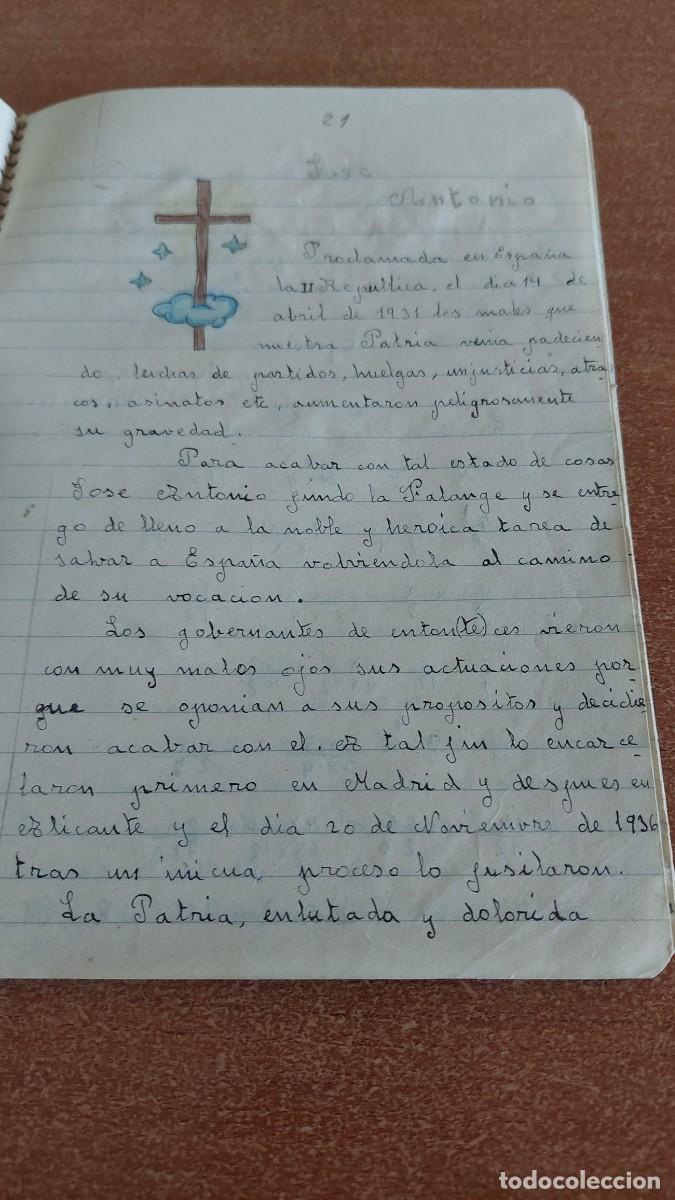 21
Jose
Antonio
Proclamada en España
la II Republica, el dia 14 de
abril de 1931 los males que
nuestra Patria venia padecien
do, luchas de partidos, huelgas, injusticias, atra
cos, asinatos etc, aumentaron peligrosamente
su gravedad.
Para acabar con tal estado de cosas
Jose Antonio fundo la Falange y se entre
go de lleno a la noble y heroica tarea de
salvar a España volviendola al camino
de su vocacion.
Los gobernantes de enton(te)ces vieron
con muy malos ojos sus actuaciones por
que se oponian a sus propositos y decidie
ron acabar con el. A tal fin lo encarce
laron primero en Madrid y despues en
Alicante y el dia 20 de Noviembre de 1936
tras un inicua proceso lo fusilaron.
La Patria, enlutada y dolorida
todocoleccion